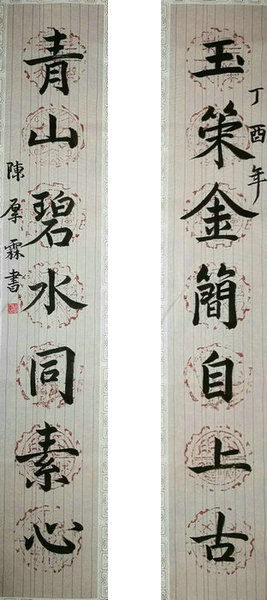 玉策金簡自上古
丁酉年
青山碧水同素心
陳厚霖書